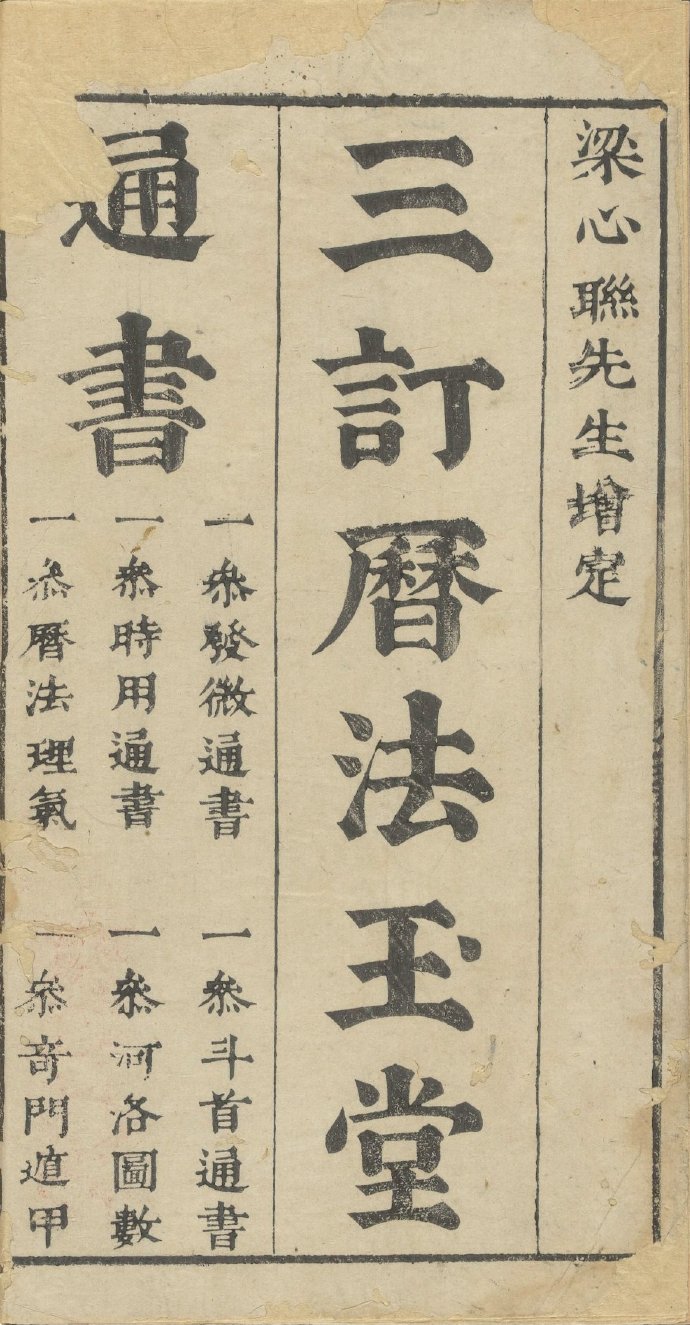 梁心聯先生增定
三訂曆法玉堂
通書
一叅發微通書
一叅斗首通書
一叅時用通書
一叅河洛圖數
一叅曆法理氣
一叅奇門遁甲